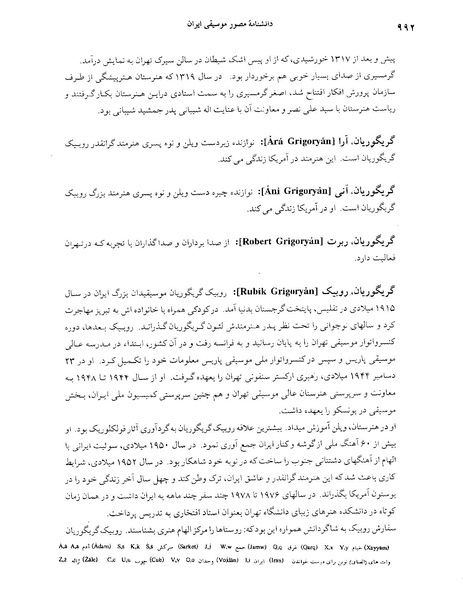 ۹۹۲
دانشنامهٔ مصور موسیقی ایران
پیش و بعد از ۱۳۱۷ خورشیدی، که از او پیس اشک شیطان در سالن سیرک تهران به نمایش درآمد.
گرمسیری از صدای بسیار خوبی هم برخوردار بود. در سال ۱۳۱۹ که هنرستان هنرپیشگی از طرف
سازمان پرورش افکار افتتاح شد، اصغر گرمسیری را به سمت استادی دراین هنرستان بکار گرفتند و
ریاست هنرستان با سید علی نصر و معاونت آن با عنایت اله شیبانی پدر جمشید شیبانی بود.
گریگوریان، آرا [Ârâ Grigoryân]: نوازنده زبردست ویلن و نوه پسری هنرمند گرانقدر روبیک
گریگوریان است. این هنرمند در آمریکا زندگی می کند.
گریگوریان، آنی [Âni Grigoryân]: نوازنده چیره دست ویلن و نوه پسری هنرمند بزرگ روبیک
گریگوریان است. او در آمریکا زندگی می کند.
گریگوریان، ربرت [Robert Grigoryân]: از صدا برداران و صداگذاران با تجربه که در تهران
فعالیت دارد.
گریگوریان، روبیک [Rubik Grigoryân]: روبیک گریگوریان موسیقیدان بزرگ ایران در سال
۱۹۱۵ میلادی در تفلیس، پایتخت گرجستان بدنیا آمد. درکودکی همراه با خانواده اش به تبریز مهاجرت
کرد و سالهای نوجوانی را تحت نظر پدر هنرمندش لئون گریگوریان گذراند. روبیک بعدها، دوره
کنسرواتوار موسیقی تهران را به پایان رسانید و به فرانسه رفت و در آن کشور، ابتداء در مدرسه عالی
موسیقی پاریس و سپس در کنسرواتوار ملی موسیقی پاریس معلومات خود را تکمیل کرد. او در ۲۳
دسامبر ۱۹۴۴ میلادی، رهبری ارکستر سنفونی تهران را بعهده گرفت. او از سال ۱۹۴۴ تا ۱۹۴۸ به
معاونت و سرپرستی هنرستان عالی موسیقی تهران و هم چنین سرپرستی کمیسیون ملی ایران، بخش
موسیقی در یونسکو را بعهده داشت.
او در هنرستان، ویلن آموزش میداد. بیشترین علاقه روبیک گریگوریان به گردآوری آثار فولکلوریک بود. او
بیش از ۶۰ آهنگ ملی از گوشه و کنار ایران جمع آوری نمود. در سال ۱۹۵۰ میلادی، سوئیت ایرانی با
الهام از آهنگهای دشتستانی جنوب را ساخت که در نوبه خود شاهکار بود. در سال ۱۹۵۲ میلادی، شرایط
کاری باعث شد که این هنرمند گرانقدر و عاشق ایران، ترک وطن کند و چهل سال آخر زندگی خود را در
بوستون آمریکا بگذراند. در سالهای ۱۹۷۶ تا ۱۹۷۸ چند سفر چند ماهه به ایران داشت و در همان زمان
کوتاه در دانشکده هنرهای زیبای دانشگاه تهران بعنوان استاد افتخاری به تدریس پرداخت.
سفارش روبیک به شاگردانش همواره این بود که: روستاها را مرکز الهام هنری بشناسند. روبیک گریگوریان